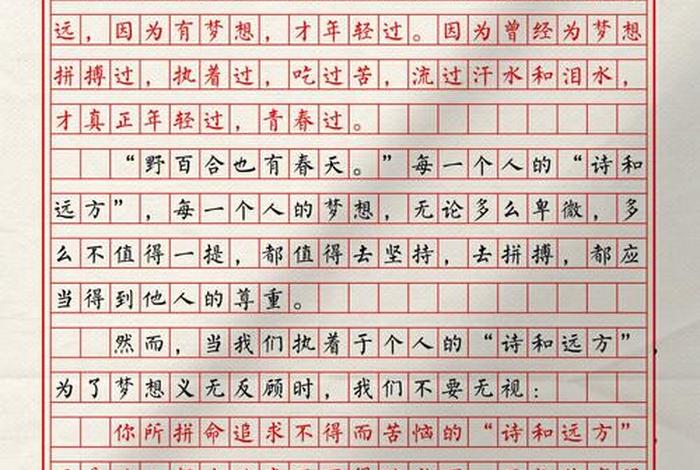 远，因为有梦想，才年轻过。因为曾经为梦想
拼搏过，执着过，吃过苦，流过汗水和泪水，
才真正年轻过，青春过。
“野百合也有春天。”每一个人的“诗和
远方”，每一个人的梦想，无论多么卑微，多
么不值得一提，都值得去坚持，去拼搏，都应
当得到他人的尊重。
然而，当我们执着于个人的“诗和远方”，
为了梦想义无反顾时，我们不要无视：
你所拼命追求不得而苦恼的“诗和远方”，